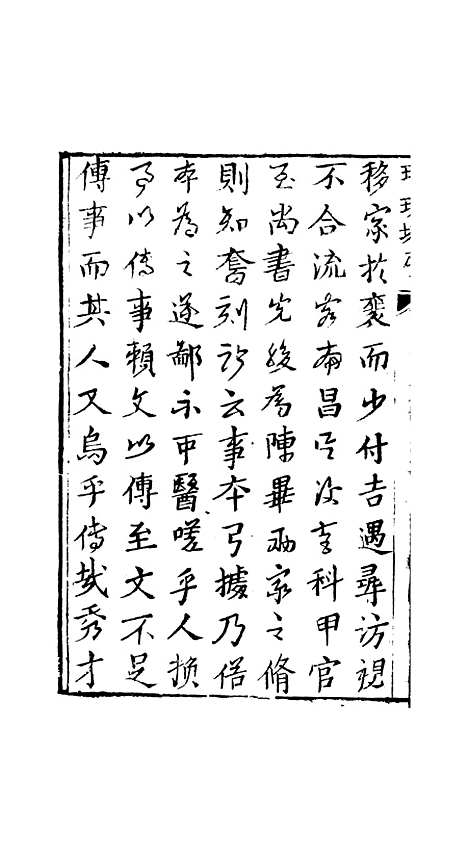 移家於襄而少付吉遇尋訪視
不合流客南昌已後重科甲官
至尚書先後為陳畢兩家之脩
則知奮刻所云事本弓據乃俗
本為之遂鄙不中醫嗟乎人換
事以傳事賴文以傳至文不足
傳事而其人又烏乎傳哉秀才